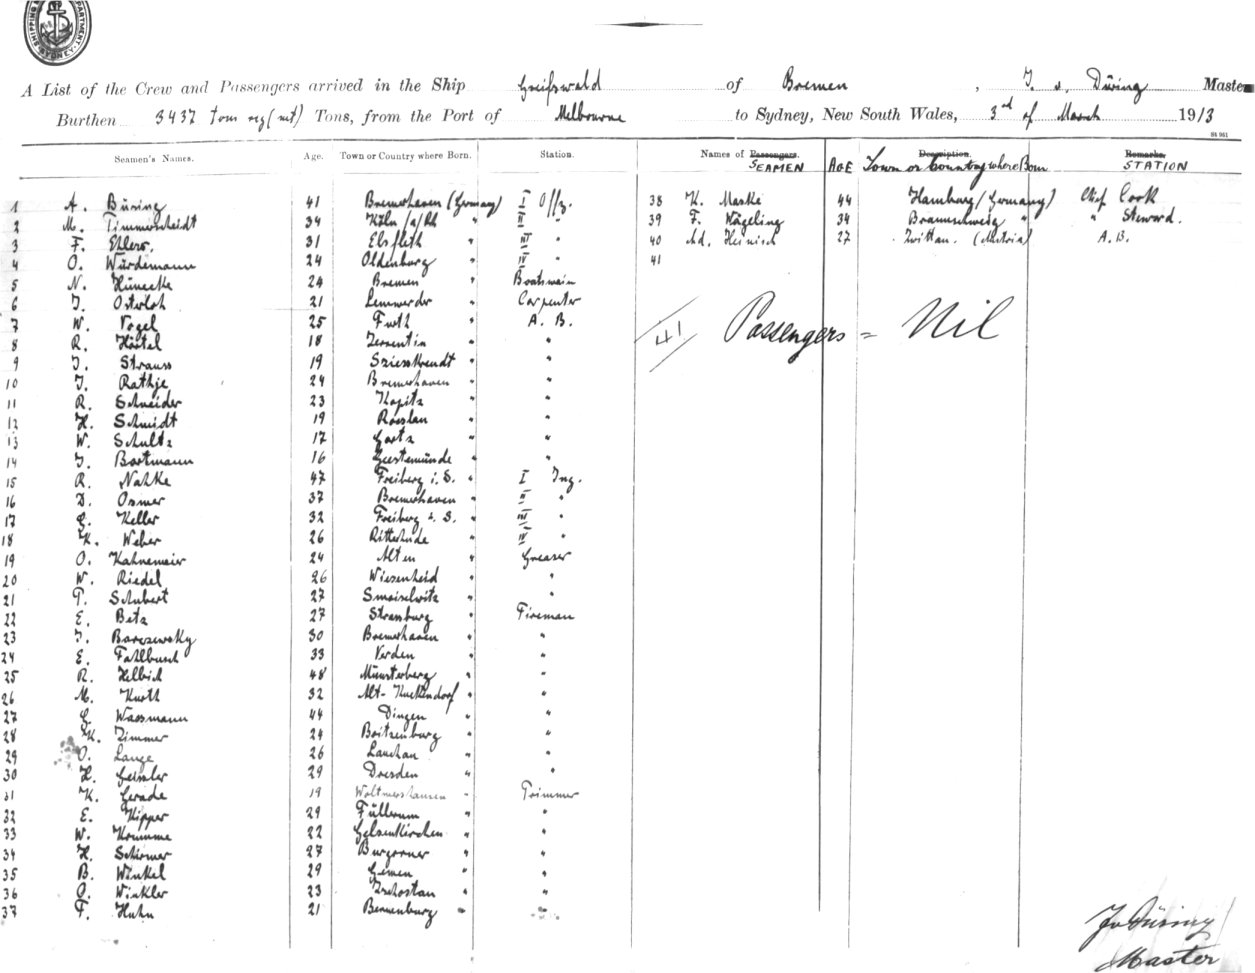 SHIPPING DEPARTMENT SYDNEY
A List of the Crew and Passengers arrived in the Ship Greifswald of Bremen, J. v. Düring Master
Burthen 3437 tons reg (net) Tons, from the Port of Melbourne to Sydney, New South Wales, 3rd of March 1913
St 961
Seamen's Names. Age. Town or Country where Born. Station. Names of Passengers. SEAMEN AGE Description. Town or Country where Born Remarks. STATION
1 A. Büring 41 Bremerhaven (Germany) I Offz. 38 K. Maske 44 Hamburg (Germany) Chief Cook
2 M. Timmerscheidt 34 Köln a/Rh " II " 39 F. Wägeling 34 Braunschweig " " Steward.
3 F. Ehlers. 31 Elsfleth " III " 40 Ad. Heinisch 27 Zwittau. (Austria) A.B.
4 O. Würdemann 24 Oldenburg " IV " 41
5 N. Hünecke 24 Bremen " Boatsmain
6 J. Osterloh 21 Lemwerder " Carpenter
7 W. Vogel 25 Furth " A. B.
41 Passengers = Nil
8 R. Härtel 18 "
9 J. Strauss 19 " "
10 J. Rathje 24 Bremerhaven " "
11 R. Schneider 23 Kopitz " "
12 H. Schmidt 19 Rosslau " "
13 W. Schultz 17 Gartz " "
14 J. Bartmann 16 Geestemünde " "
15 R. Nahke 47 Freiberg i. S. " I Ing.
16 D. Osmer 37 Bremerhaven " II "
17 G. Keller 32 Freiberg i. S. " III "
18 K. Weber 26 Ritterhude " IV "
19 O. Kahnemeier 24 Alten " Greaser
20 W. Riedel 26 Wiesenheid " "
21 P. Schubert 27 Smoiselwitz " "
22 E. Betz 27 Strassburg " Fireman
23 J. Barczewsky 30 Bremerhaven " "
24 E. Fahlbusch 33 Verden " "
25 R. Helbich 48 Münsterberg " "
26 M. Kurth 32 Alt- " "
27 G. Wassmann 44 Dingen " "
28 K. Zimmer 24 Boitzenburg " "
29 O. Lange 26 Lauchau " "
30 H. Geissler 29 Dresden " "
31 K. Gerade 19 Woltmershausen " Trimmer
32 E. Kipper 29 Füllerum " "
33 W. Krumme 22 Gelsenkirchen " "
34 H. Schirmer 27 Burgörner " "
35 B. Winkel 29 Gemen " "
36 O. Winkler 23 " "
37 F. Huhn 21 Bernenburg " "
J v Düring
Master